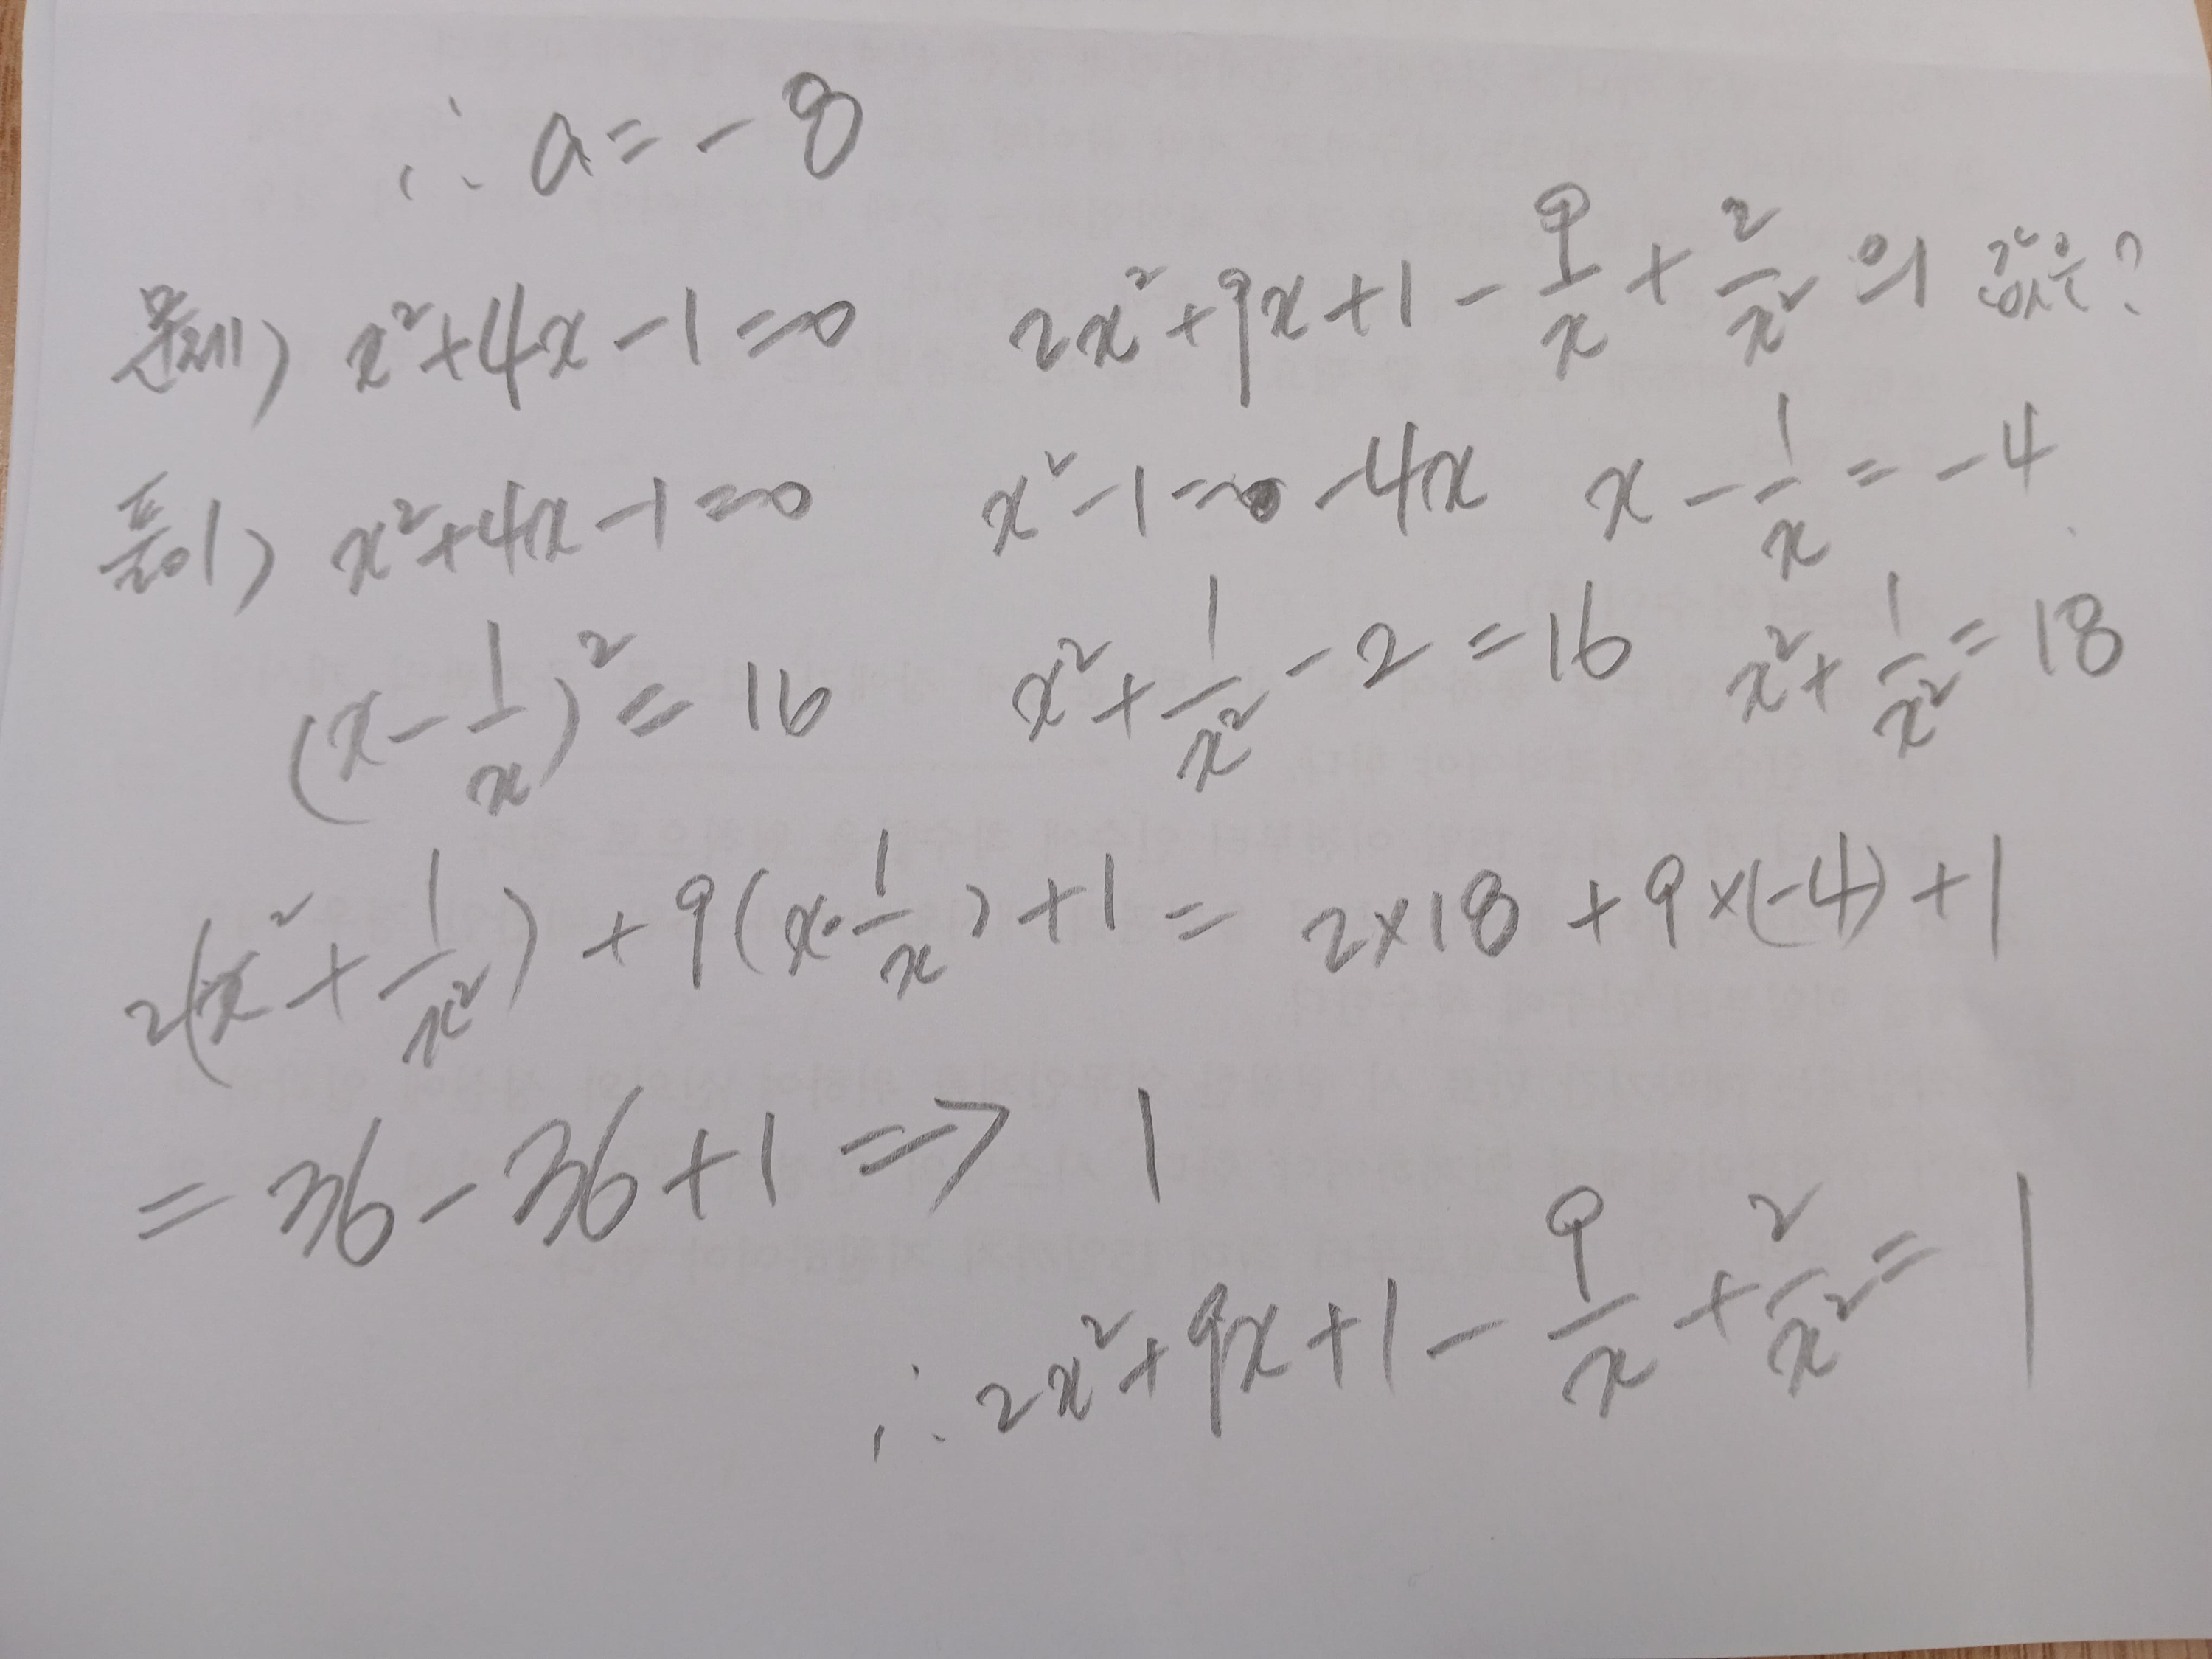 ∴ a = -8
문제) x²+4x-1=0 2x²+9x+1-9/x+2/x²의 값은?
풀이) x²+4x-1=0 x²-1= -4x x-1/x=-4
(x-1/x)²=16 x²+1/x²-2=16 x²+1/x²=18
2(x²+1/x²)+9(x-1/x)+1= 2×18+9×(-4)+1
=36-36+1 => 1
∴ 2x²+9x+1-9/x+2/x²=1